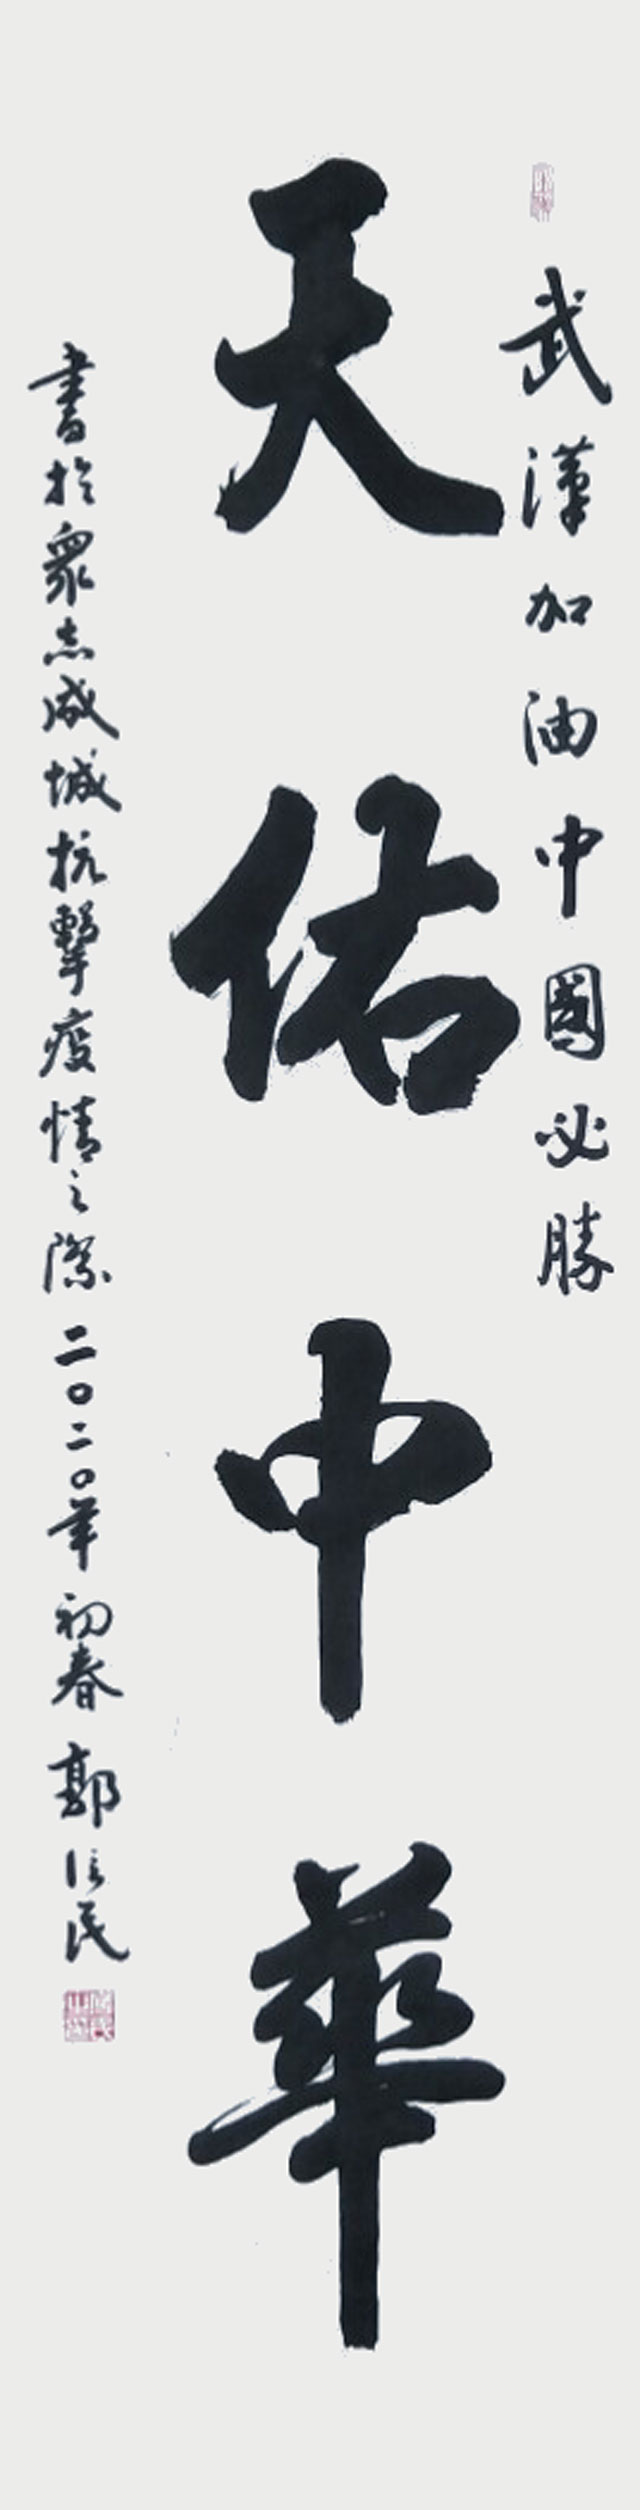 武漢加油中國必勝
天佑中華
書於衆志成城抗擊疫情之際二〇二〇年初春郭信民